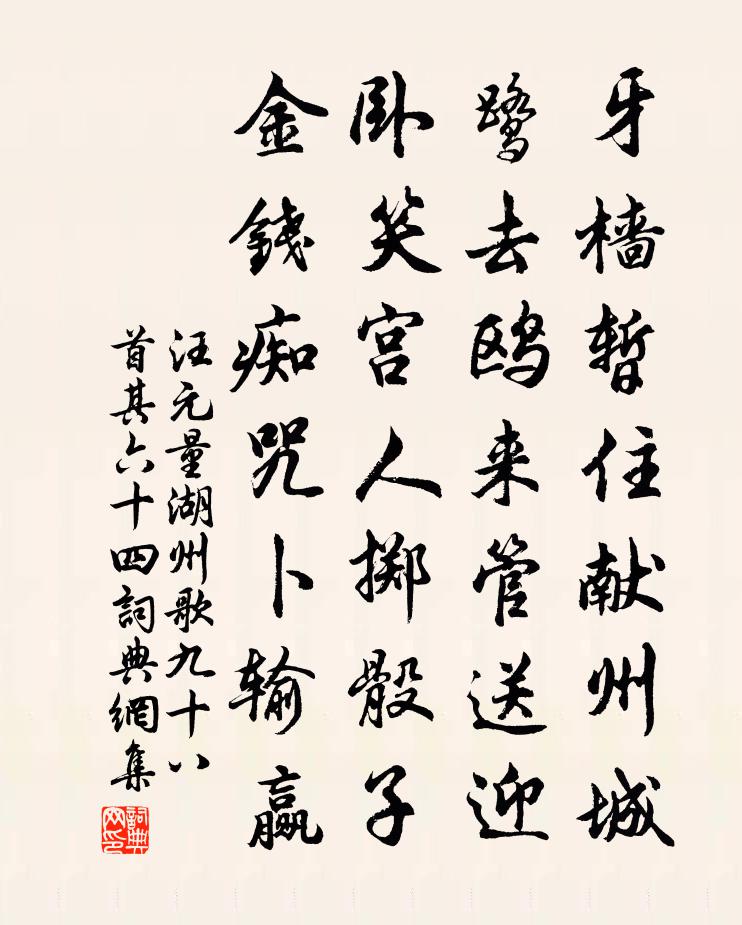 牙樯暂住献州城
鹭去鸥来管送迎
卧笑宫人掷骰子
金钱痴咒卜输赢
汪元量湖州歌九十八
首其六十四詞典網集
詞典
网印